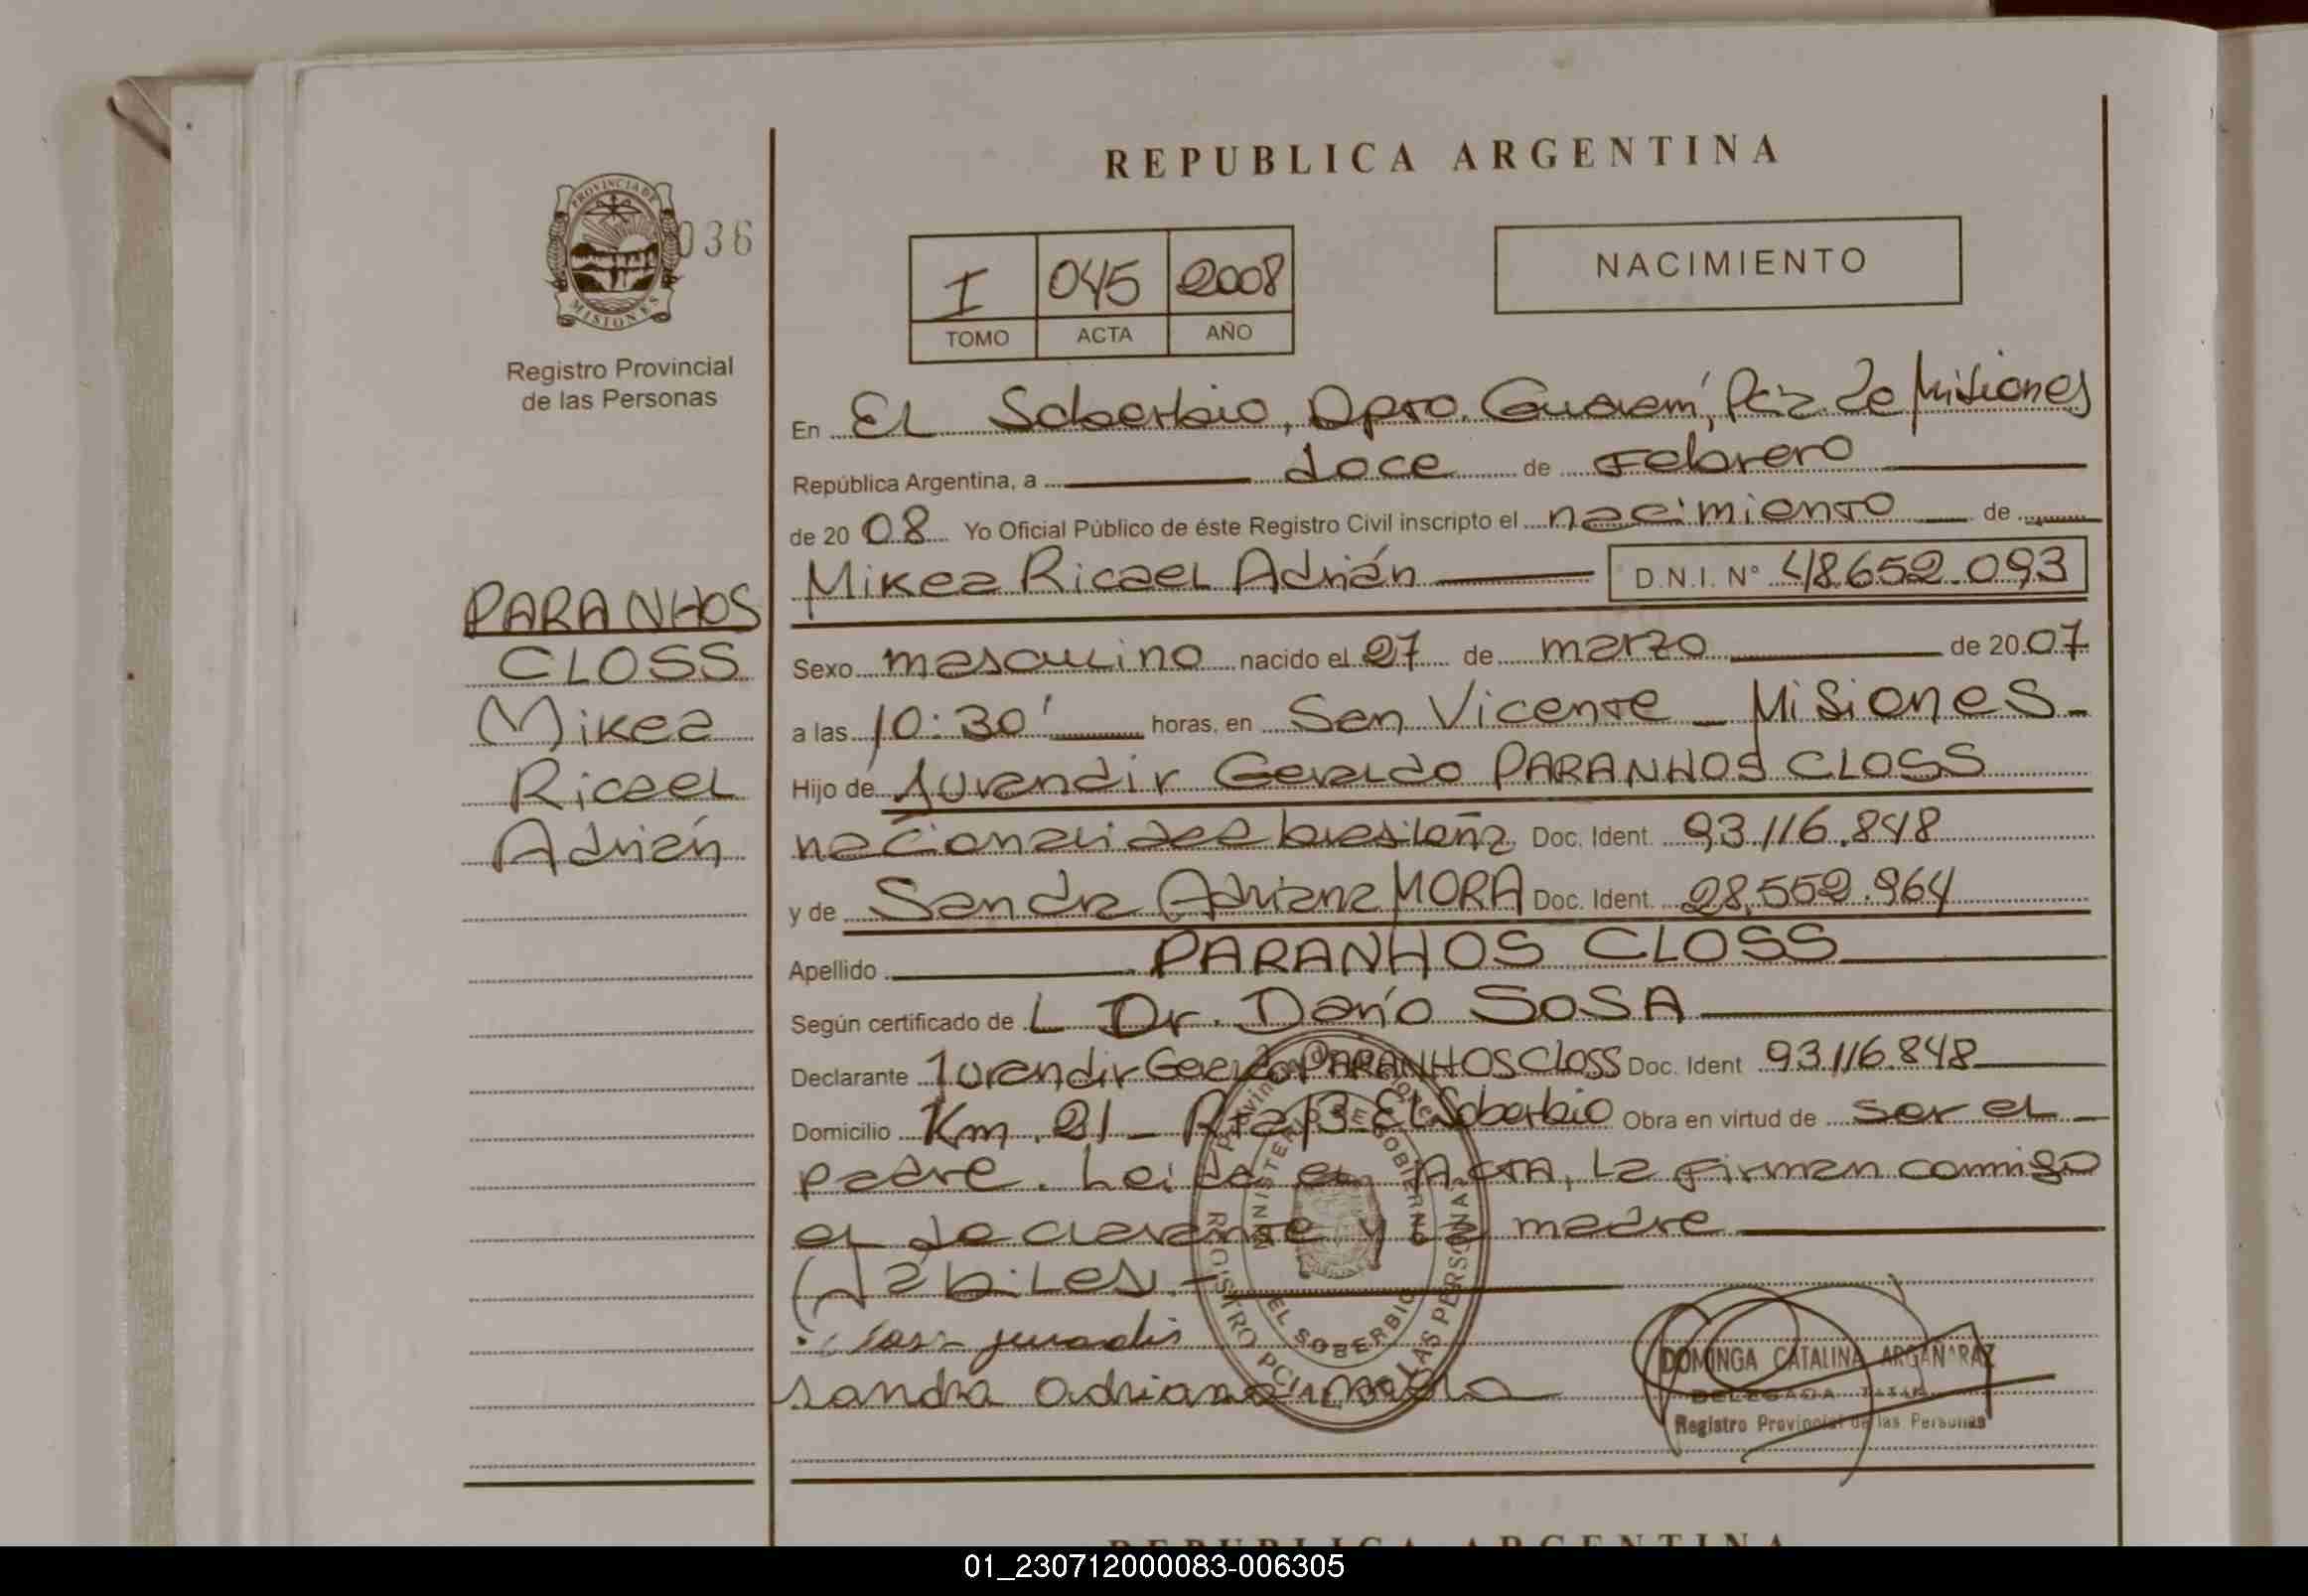 REPUBLICA ARGENTINA
PROVINCIA DE
MISIONES
036
Registro Provincial
de las Personas
I 045 2008
TOMO ACTA AÑO
NACIMIENTO
En EL Soberbio, Dpto. Guaraní, Pcia. de Misiones
República Argentina, a doce de Febrero
de 20 08 Yo Oficial Público de éste Registro Civil inscripto el nacimiento de
Mikea Ricael Adrián D.N.I. N° 48.652.093
PARANHOS
CLOSS
Mikea
Ricael
Adrián
Sexo masculino nacido el 27 de marzo de 20 07
a las 10:30' horas, en San Vicente - Misiones-
Hijo de Jurandir Geraldo PARANHOS CLOSS
nacionalidad brasileña Doc. Ident. 93.116.848
y de Sandra Adriana MORA Doc. Ident. 28.552.964
Apellido PARANHOS CLOSS
Según certificado de L Dr. Darío SOSA
Declarante Jurandir Geraldo PARANHOS Closs Doc. Ident 93.116.848
Domicilio Km. 21 - Rta 13 - El Soberbio Obra en virtud de ser el -
padre. Leida el ACTA, la firman conmigo
el declarante y la madre
Hábiles.-
sandra adriana mora
MINISTERIO DE GOBIERNO
EL SOBERBIO
REGISTRO PCIAL. DE LAS PERSONAS
DOMINGA CATALINA ARGAÑARAZ
DELEGADA
Registro Provincial de las Personas
REPUBLICA ARGENTINA
01_230712000083-006305